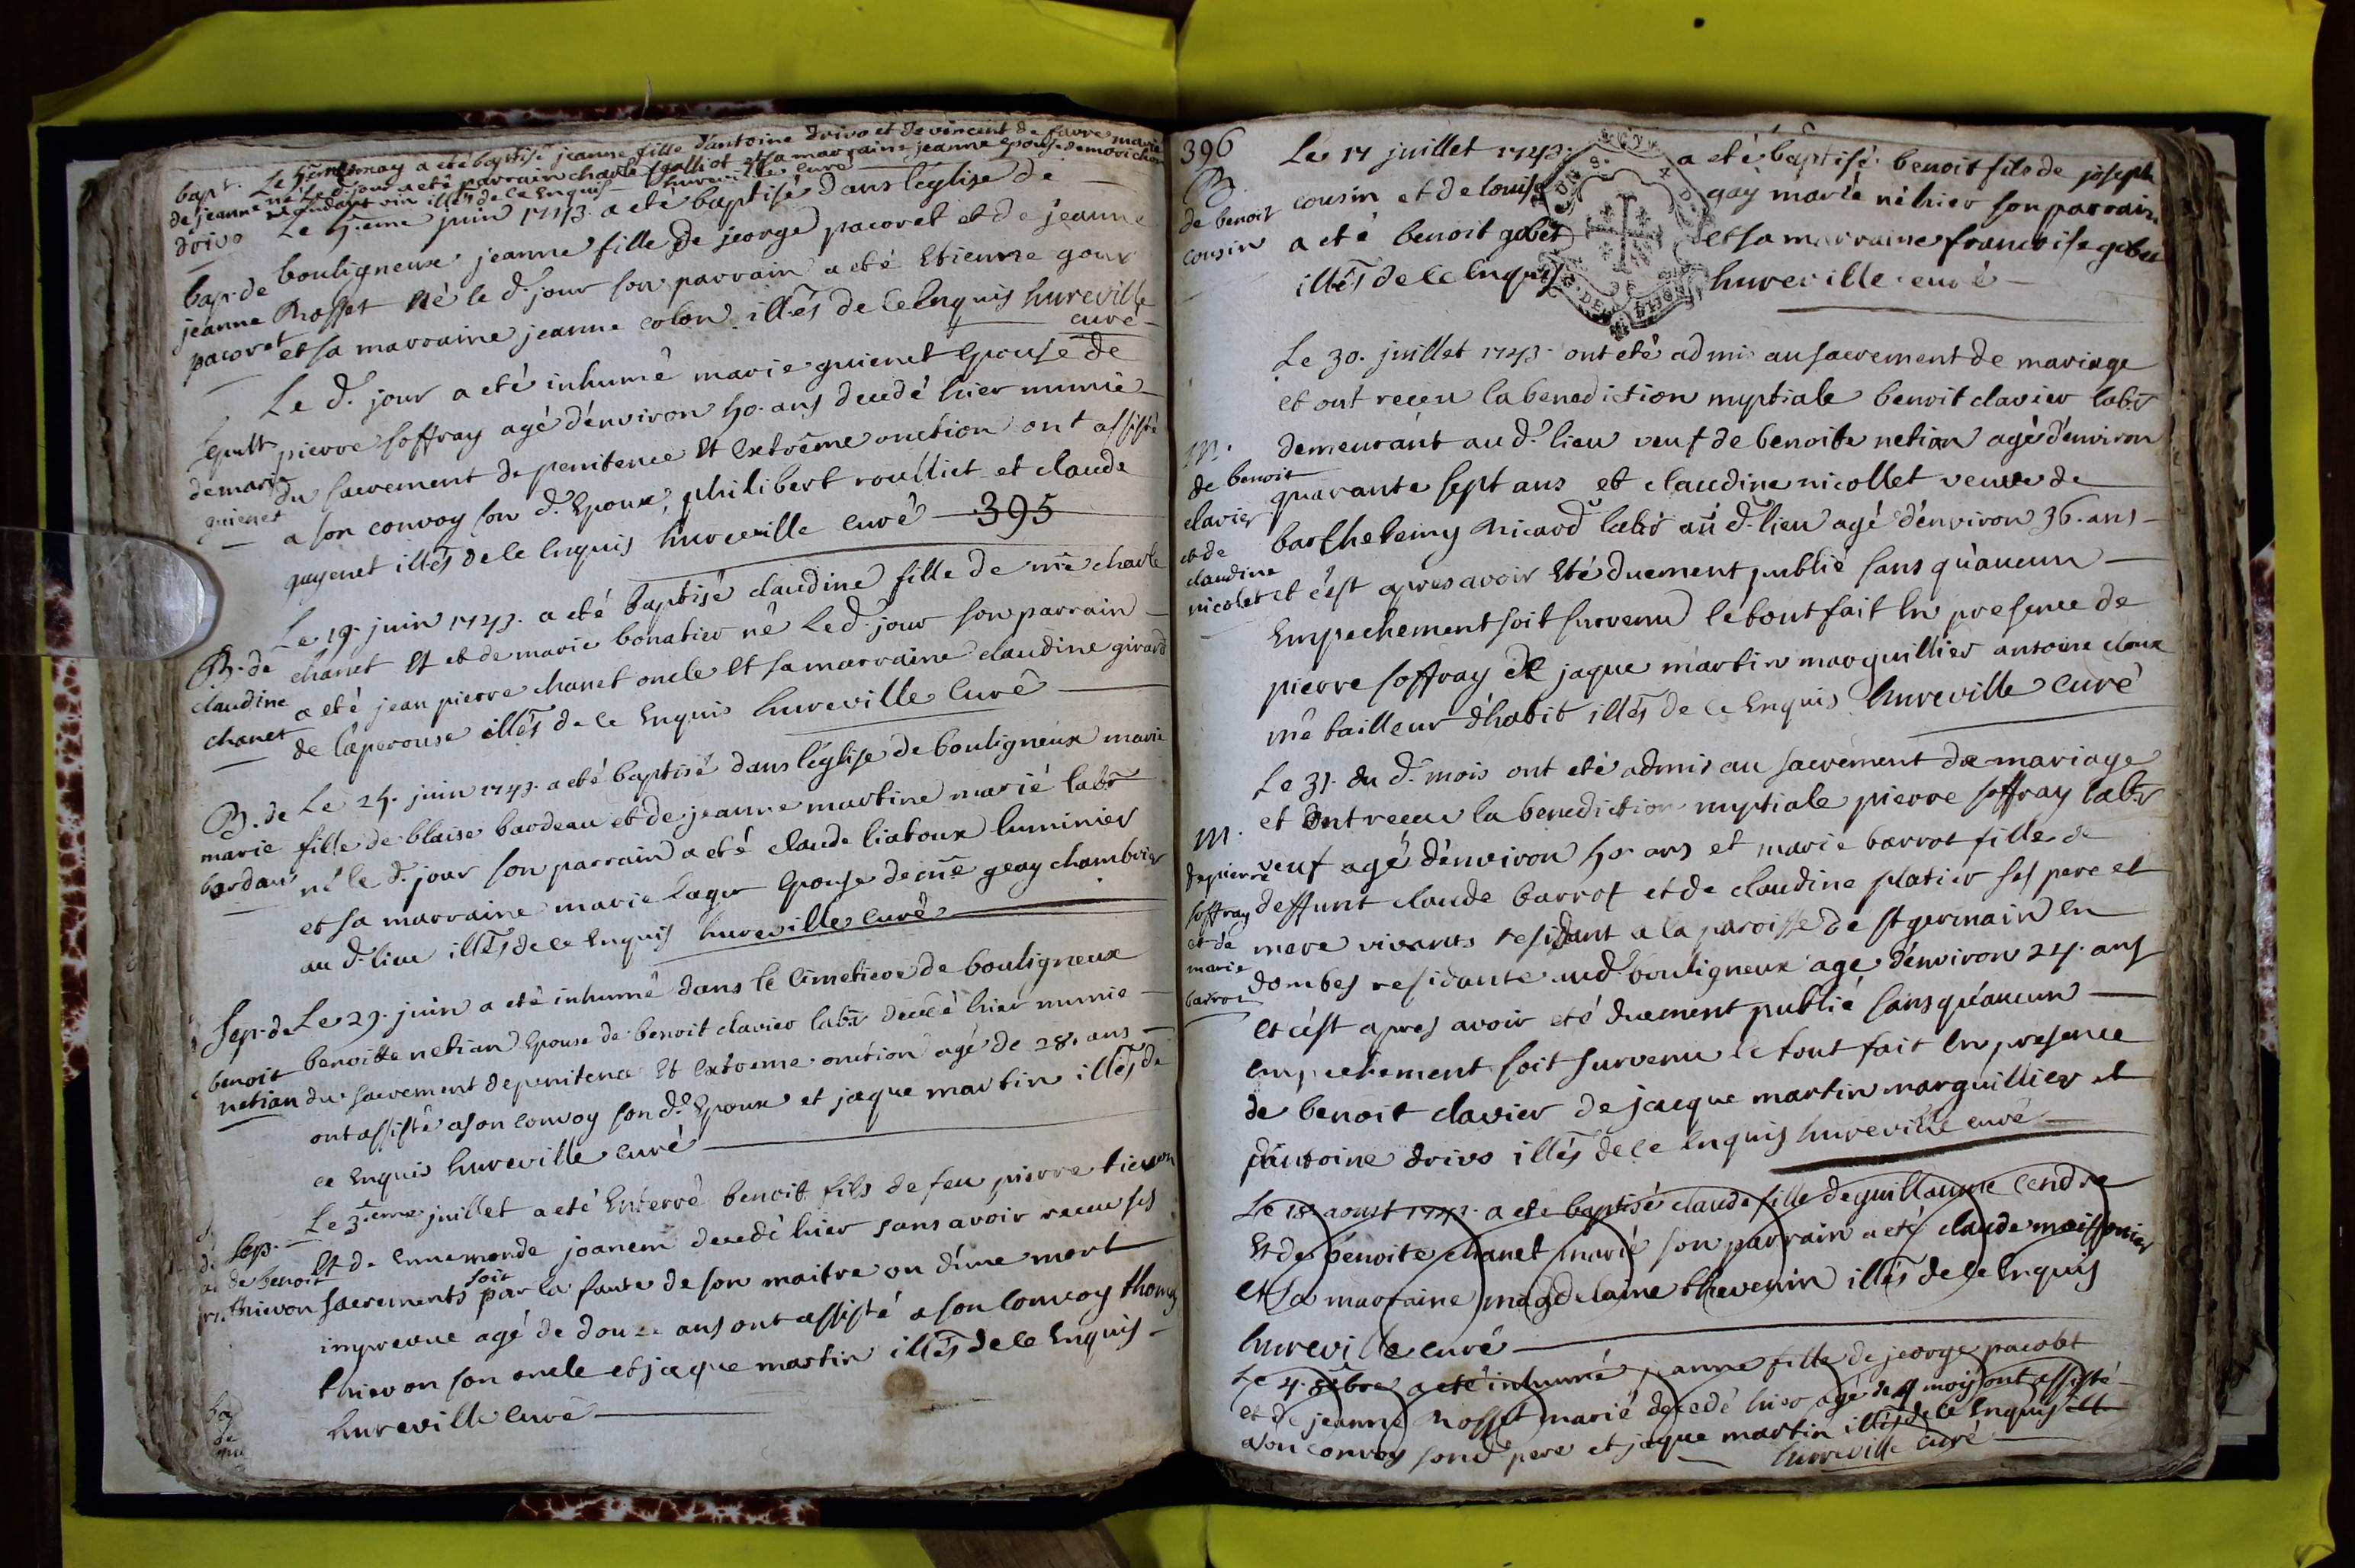 bapt. Le may a eté baptisé jeanne fille d'antoine drivo et de vincent de favre marié
de jeanne né le d. jour a eté parrain charle galliot et sa marraine jeanne epouse de
drivo vin illés de ce Enquis hureville curé
Le 5.eme juin 1743. a eté baptisé dans l'eglise de
bap. de bouligneux jeanne fille de jeorge pacoret et de jeanne
jeanne Rosset né le d. jour son parrain a eté Etienne gour
pacoret et sa marraine jeanne colon illés de ce Enquis hureville
curé
Le d. jour a eté inhumé marie guienet Epouse de
sepult pierre soffray agé d'environ 50. ans decedé hier munie
de marie du sacrement de penitence Et Extrême onction ont assisté
guienet a son convoy son d. Epoux, philibert roulliet et claude
guyenet illés de ce Enquis hureville curé 395
Le 19. juin 1743. a eté baptisé claudine fille de me charle
B. de chanet Et et de marie bonatier né Le d. jour son parrain
claudine a eté jean pierre chanet oncle Et sa marraine claudine girard
chanet de laperouse illés de ce Enquis hureville Curé
B. de Le 24. juin 1743. a eté baptisé dans l'eglise de bouligneux marie
marie fille de blaise bardeau et de jeanne martine marié labr
bardau né le d. jour son parrain a eté claude liatoux luminier
et sa marraine marie lagr Epouse de me geay chambrier
au d. lieu illés de ce Enquis hureville curé
Sep. de Le 29. juin a eté inhumé dans le Cimetiere de bouligneux
benoit benoitte netian Epouse de benoit clavier labr decedé hier munie
netian du sacrement de penitence Et Extreme onction agé de 28. ans
ont assisté a son Convoy son d. Epoux et jaque martin illés de
ce Enquis hureville curé
Le 3.eme juillet a eté Enterré benoit fils de feu pierre tievon
Sep. Et de Ennemonde joanem decedé hier sans avoir receu ses
de benoit soit
thievon sacrements par la faute de son maitre ou d'une mort
imprevue agé de douze ans ont assisté a son Convoy thomas
thievon son oncle et jaque martin illés de ce Enquis
hureville Curé
396 Le 17 juillet 1743. a eté baptisé benoit fils de joseph
B. cousin et de louise gay marié né hier son parrain
de benoit
cousin a eté benoit gobet et sa marraine francoise gobet
illés de ce Enquis hureville curé
Le 30. juillet 1743. ont eté admis au sacrement de mariage
et ont receu la benediction nuptiale benoit clavier labr
M. demeurant au d. lieu veuf de benoite netian agé d'environ
de benoit quarante sept ans et claudine nicollet veuve de
clavier barthelemy Ricard labr au d. lieu agé d'environ 36. ans
et de
claudine
nicolet et c'est apres avoir Eté duement publié sans qu'aucun
Empechement soit survenu le tout fait En presence de
pierre soffray et jaque martin marguillier antoine
me tailleur d'habit illés de ce Enquis hureville Curé
Le 31. du d. mois ont eté admis au sacrement de mariage
et ont receu la benediction nuptiale pierre soffray labr
M.
de pierre veuf agé d'environ 50 ans et marie barrot fille de
soffray deffunt claude barrot et de claudine platier ses pere et
et de mere vivants residant a la paroisse de st germain En
marie
barrot dombes residante aud. bouligneux agé d'environ 24. ans
et c'est apres avoir eté duement publié sans qu'aucun
Empechement soit survenu le tout fait En presence
de benoit clavier de jacque martin marguillier et
d'antoine drivo illés de ce Enquis hureville curé
Le 18 aoust 1743. a eté baptisé claude fille de guillaume Cendre
Et de benoite chanet marié son parrain a eté claude moissonier
et sa marraine magdelaine thevenin illés de ce Enquis
hureville curé
Le 4. 8bre a eté inhumé jeanne fille de jeorge pacoret
et de jeanne Rosset marié decedé hier agé de 4 mois ont assisté
a son convoy son d. pere et jaque martin illés de ce Enquis
hureville curé